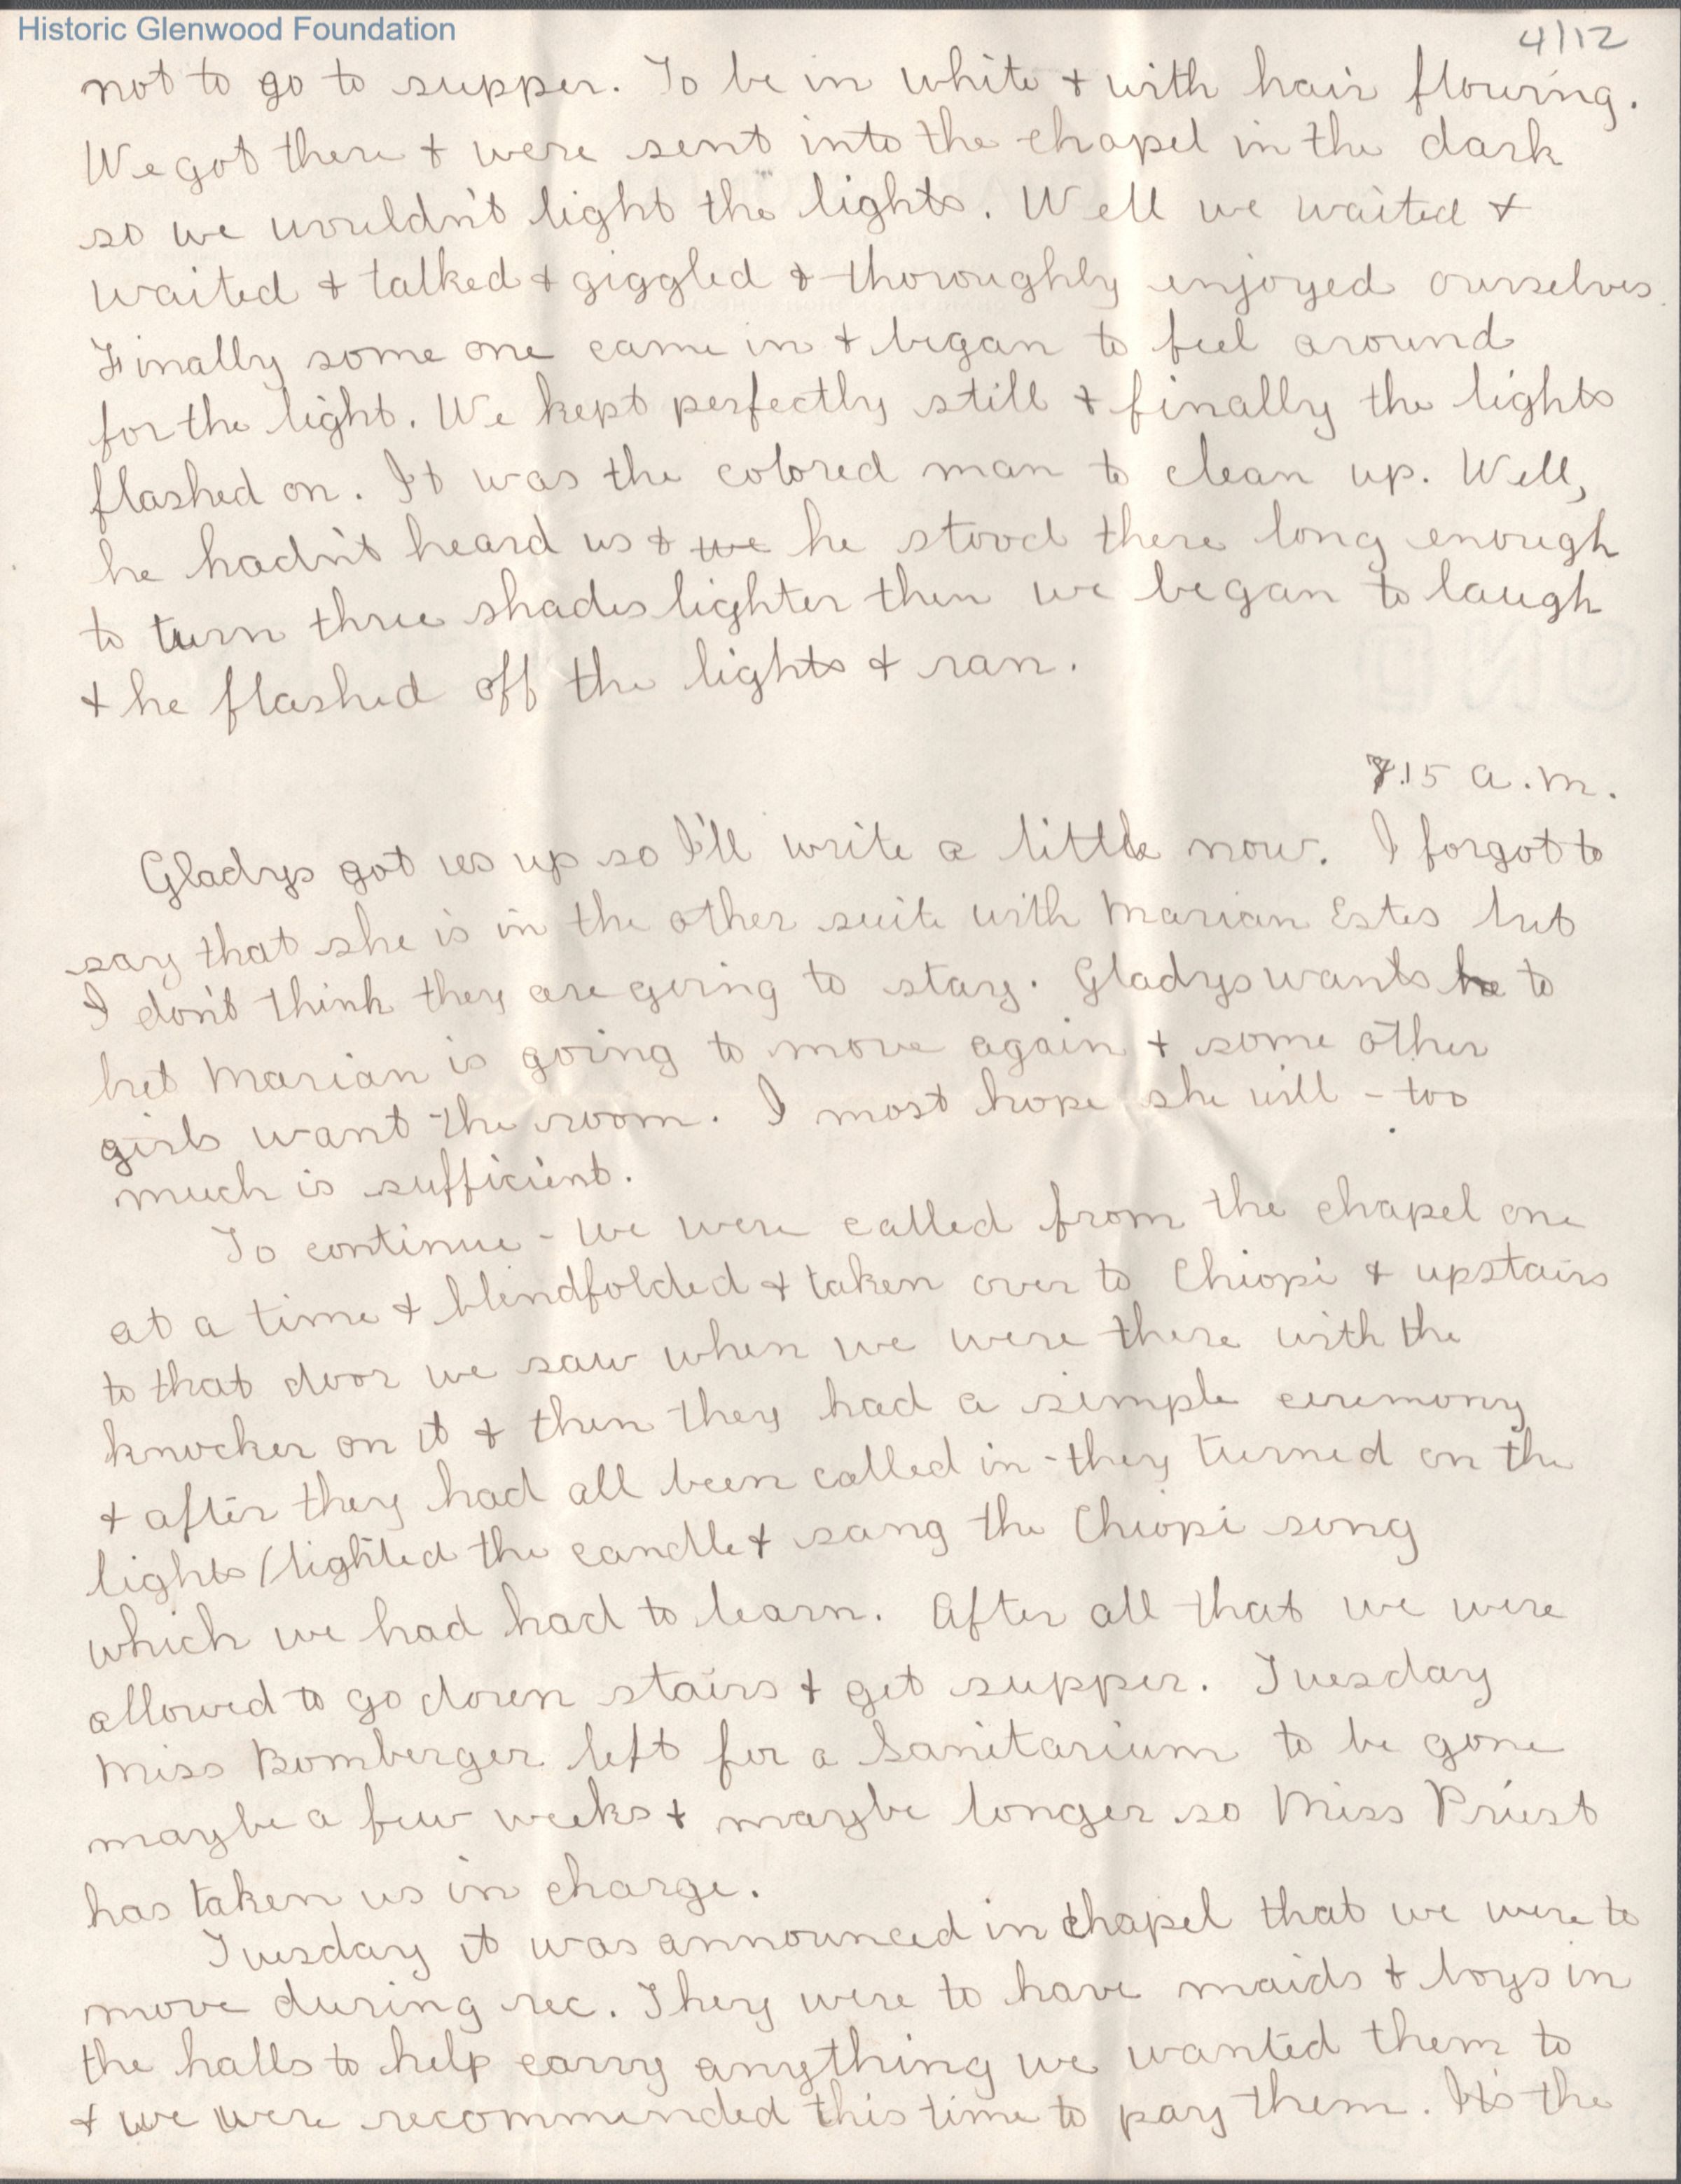 Historic Glenwood Foundation
4/12
not to go to supper. To be in white + with hair flowing.
We got there + were sent into the chapel in the dark
so we wouldn't light the lights. Well we waited +
waited + talked + giggled + thoroughly enjoyed ourselves.
Finally some one came in + began to feel around
for the light. We kept perfectly still + finally the lights
flashed on. It was the colored man to clean up. Well,
he hadn't heard us + we he stood there long enough
to turn three shades lighter then we began to laugh
+ he flashed off the lights + ran.
7.15 a.m.
Gladys got us up so I'll write a little now. I forgot to
say that she is in the other suite with Marian Estes but
I don't think they are going to stay. Gladys wants to
bet Marian is going to move again + some other
girls want the room. I most hope she will - too
much is sufficient.
To continue - we were called from the chapel one
at a time + blindfolded + taken over to Chiopi + upstairs
to that door we saw when we were there with the
knocker on it + then they had a simple ceremony
+ after they had all been called in - they turned on the
lights / lighted the candle + sang the Chiopi song
which we had had to learn. After all that we were
allowed to go down stairs + get supper. Tuesday
Miss Bomberger left for a Sanitarium to be gone
maybe a few weeks + maybe longer so Miss Priest
has taken us in charge.
Tuesday it was announced in chapel that we were to
move during rec. They were to have maids + boys in
the halls to help carry anything we wanted them to
+ we were recommended this time to pay them. It's the